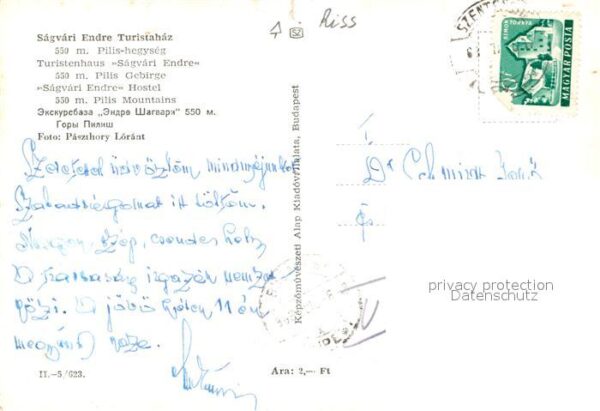 Riss
Ságvári Endre Turistaház
550 m. Pilis-hegység
Turistenhaus »Ságvári Endre«
550 m. Pilis Gebirge
»Ságvári Endre« Hostel
550 m. Pilis Mountains
Экскурсбаза „Эндре Шагвари" 550 м.
Горы Пилиш
Foto: Pászthory Lóránt
Szeretettel üdvözlöm mindnyájunkat
Szabadságomat itt töltöm.
Nagyon szép, csendes hely
A társaság igazán nemzet-
közi. A jövő héten 11 én
megyünk
II.-5/623.
Ára: 2,— Ft
Képzőművészeti Alap Kiadóvállalata, Budapest
SZENT
MAGYAR POSTA
Dr
és
privacy protection
Datenschutz